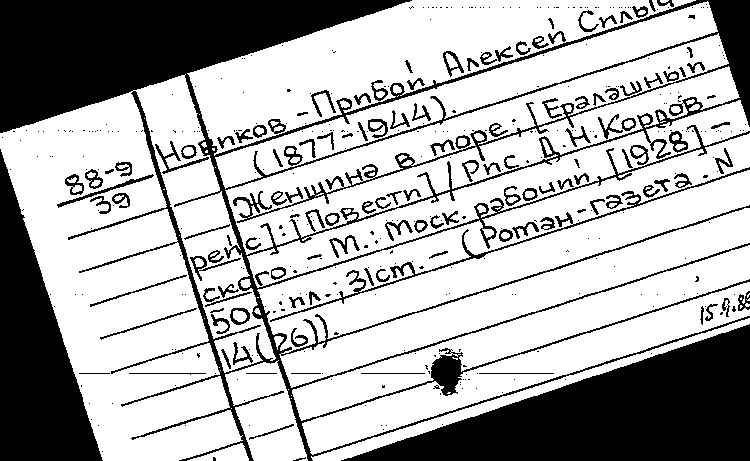 Новиков-Прибой, Алексей Силыч
(1877-1944).
88-9
39
Женщина в море; [Ералашный
рейс]: [Повести] / Рис. Д.Н. Кордов-
ского. - М.: Моск. рабочий, [1928] -
50с.: ил.; 31cm. - (Роман-газета. N
14(26)).
15.9.88